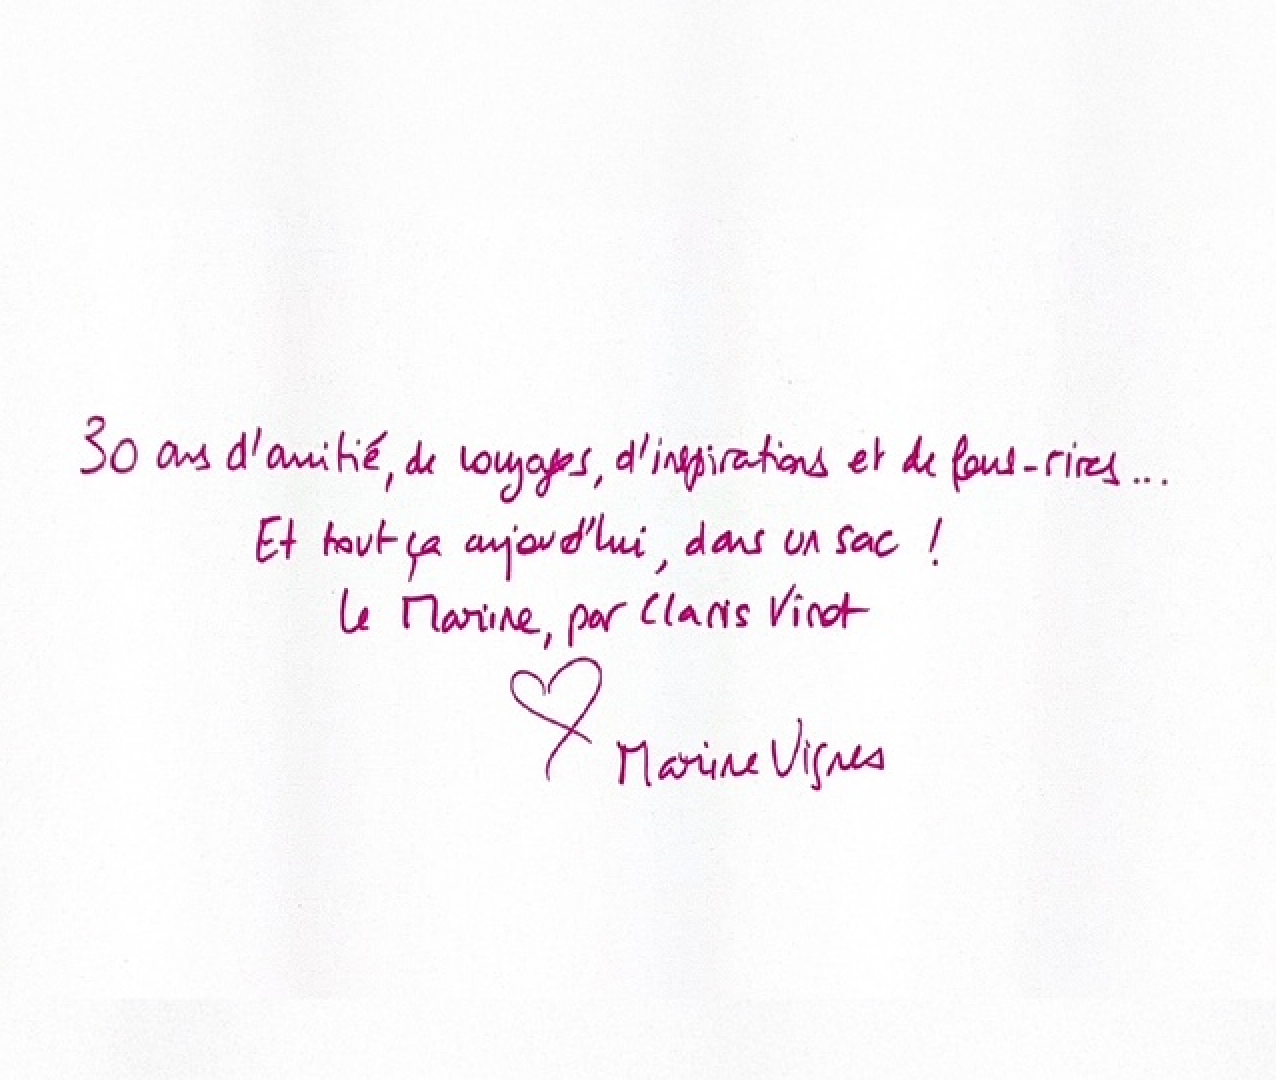 30 ans d'amitié, de voyages, d'inspirations et de fous-rires...
Et tout ça aujourd'hui, dans un sac !
Le Marine, par Claris Virot
Marine Vignes